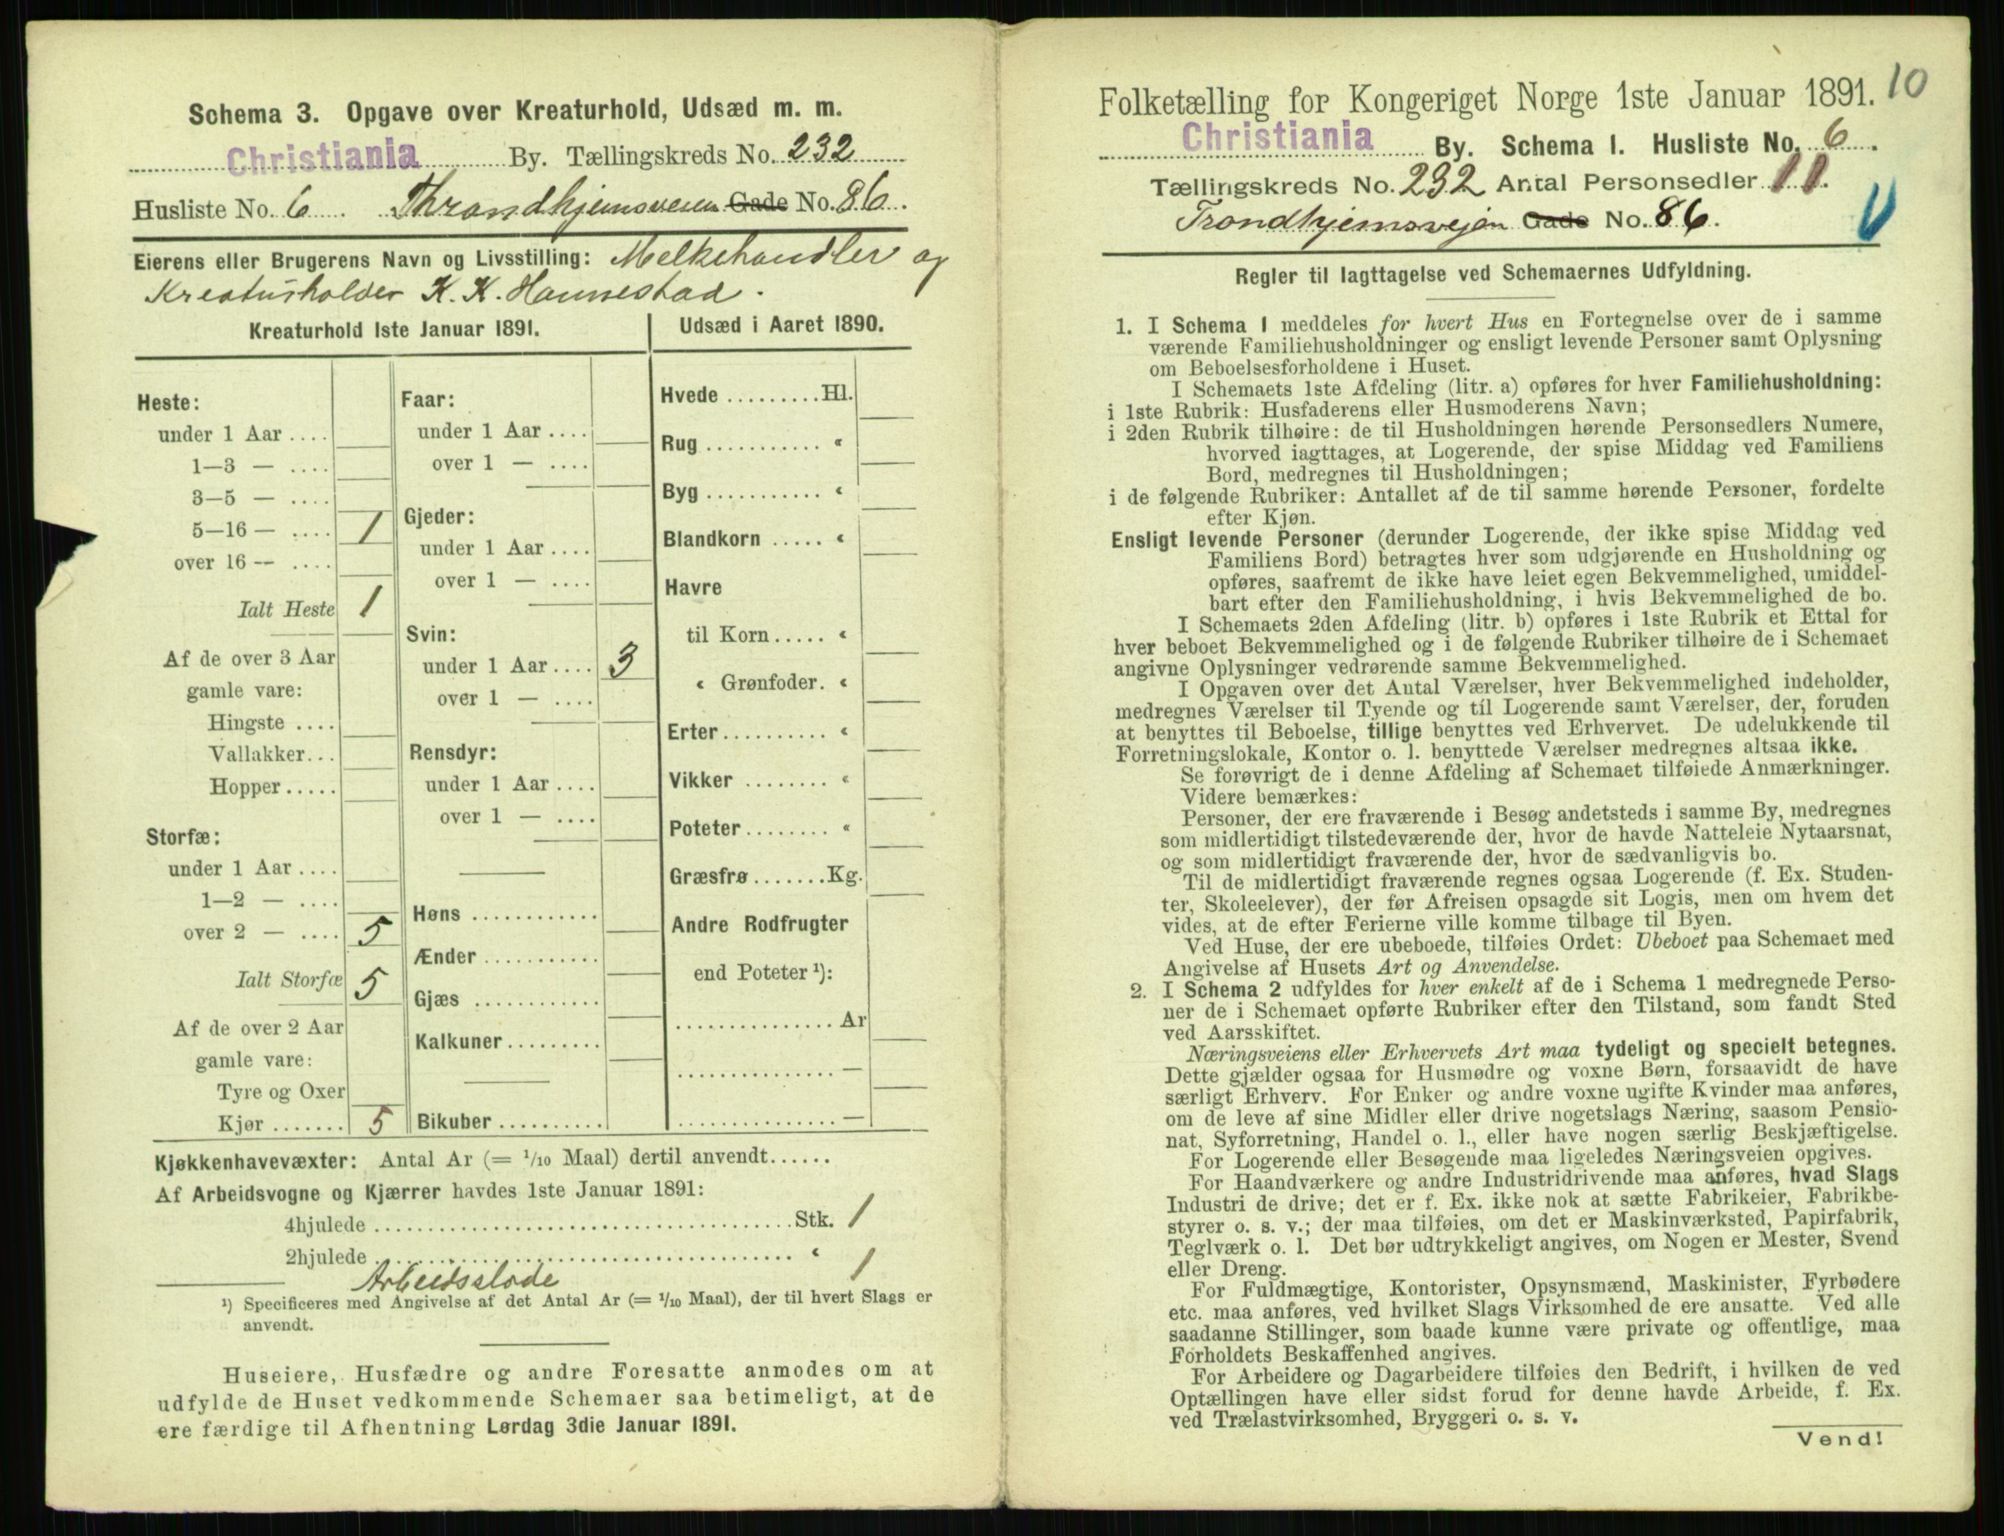 Schema 3. Opgave over Kreaturhold, Udsæd m. m.
Christiania By. Tællingskreds No. 232
Husliste No. 6. Thrandhjemsveien Gade No. 86.
Eierens eller Brugerens Navn og Livsstilling: Melkehandler og
Kreaturholder K. K. Hannestad.
Kreaturhold 1ste Januar 1891.
Heste:
under 1 Aar ....
1—3 — ....
3—5 — ....
5—16 — .... 1
over 16 — ....
Ialt Heste 1
Af de over 3 Aar
gamle vare:
Hingste ....
Vallakker...
Hopper.....
Storfæ:
under 1 Aar ....
1—2 — ....
over 2 — .... 5
Ialt Storfæ 5
Af de over 2 Aar
gamle vare:
Tyre og Oxer
Kjør ....... 5
Faar:
under 1 Aar ....
over 1 — ....
Gjeder:
under 1 Aar ....
over 1 — ....
Svin:
under 1 Aar .... 3
over 1 — ....
Rensdyr:
under 1 Aar ....
over 1 — ....
Høns ............
Ænder ...........
Gjæs ............
Kalkuner.........
Bikuber ..........
Udsæd i Aaret 1890.
Hvede .........Hl.
Rug ........... «
Byg ........... «
Blandkorn ..... «
Havre
til Korn ..... «
« Grønfoder. «
Erter.......... «
Vikker ........ «
Poteter........ «
Græsfrø .......Kg.
Andre Rodfrugter
end Poteter ¹):
............... Ar
............... —
............... —
Kjøkkenhavevæxter: Antal Ar (= 1/10 Maal) dertil anvendt......
Af Arbeidsvogne og Kjærrer havdes 1ste Januar 1891:
4hjulede ........................................ Stk. 1
2hjulede ........................................ « 1
Arbeidsslæde
¹) Specificeres med Angivelse af det Antal Ar (= 1/10 Maal), der til hvert Slags er
anvendt.
Huseiere, Husfædre og andre Foresatte anmodes om at
udfylde de Huset vedkommende Schemaer saa betimeligt, at de
ere færdige til Afhentning Lørdag 3die Januar 1891.
10
Folketælling for Kongeriget Norge 1ste Januar 1891.
Christiania By. Schema I. Husliste No. 6.
Tællingskreds No. 232 Antal Personsedler 11.
Trondhjemsvejen Gade No. 86.
Regler til Iagttagelse ved Schemaernes Udfyldning.
1. I Schema 1 meddeles for hvert Hus en Fortegnelse over de i samme
værende Familiehusholdninger og ensligt levende Personer samt Oplysning
om Beboelsesforholdene i Huset.
I Schemaets 1ste Afdeling (litr. a) opføres for hver Familiehusholdning:
i 1ste Rubrik: Husfaderens eller Husmoderens Navn;
i 2den Rubrik tilhøire: de til Husholdningen hørende Personsedlers Numere,
hvorved iagttages, at Logerende, der spise Middag ved Familiens
Bord, medregnes til Husholdningen;
i de følgende Rubriker: Antallet af de til samme hørende Personer, fordelte
efter Kjøn.
Ensligt levende Personer (derunder Logerende, der ikke spise Middag ved
Familiens Bord) betragtes hver som udgjørende en Husholdning og
opføres, saafremt de ikke have leiet egen Bekvemmelighed, umiddel-
bart efter den Familiehusholdning, i hvis Bekvemmelighed de bo.
I Schemaets 2den Afdeling (litr. b) opføres i 1ste Rubrik et Ettal for
hver beboet Bekvemmelighed og i de følgende Rubriker tilhøire de i Schemaet
angivne Oplysninger vedrørende samme Bekvemmelighed.
I Opgaven over det Antal Værelser, hver Bekvemmelighed indeholder,
medregnes Værelser til Tyende og til Logerende samt Værelser, der, foruden
at benyttes til Beboelse, tillige benyttes ved Erhvervet. De udelukkende til
Forretningslokale, Kontor o. l. benyttede Værelser medregnes altsaa ikke.
Se forøvrigt de i denne Afdeling af Schemaet tilføiede Anmærkninger.
Videre bemærkes:
Personer, der ere fraværende i Besøg andetsteds i samme By, medregnes
som midlertidigt tilstedeværende der, hvor de havde Natteleie Nytaarsnat,
og som midlertidigt fraværende der, hvor de sædvanligvis bo.
Til de midlertidigt fraværende regnes ogsaa Logerende (f. Ex. Studen-
ter, Skoleelever), der før Afreisen opsagde sit Logis, men om hvem det
vides, at de efter Ferierne ville komme tilbage til Byen.
Ved Huse, der ere ubeboede, tilføies Ordet: Ubeboet paa Schemaet med
Angivelse af Husets Art og Anvendelse.
2. I Schema 2 udfyldes for hver enkelt af de i Schema 1 medregnede Perso-
ner de i Schemaet opførte Rubriker efter den Tilstand, som fandt Sted
ved Aarsskiftet.
Næringsveiens eller Erhvervets Art maa tydeligt og specielt betegnes.
Dette gjælder ogsaa for Husmødre og voxne Børn, forsaavidt de have
særligt Erhverv. For Enker og andre voxne ugifte Kvinder maa anføres,
om de leve af sine Midler eller drive nogetslags Næring, saasom Pensio-
nat, Syforretning, Handel o. l., eller have nogen særlig Beskjæftigelse.
For Logerende eller Besøgende maa ligeledes Næringsveien opgives.
For Haandværkere og andre Industridrivende maa anføres, hvad Slags
Industri de drive; det er f. Ex. ikke nok at sætte Fabrikeier, Fabrikbe-
styrer o. s. v.; der maa tilføies, om det er Maskinværksted, Papirfabrik,
Teglværk o. l. Det bør udtrykkeligt angives, om Nogen er Mester, Svend
eller Dreng.
For Fuldmægtige, Kontorister, Opsynsmænd, Maskinister, Fyrbødere
etc. maa anføres, ved hvilket Slags Virksomhed de ere ansatte. Ved alle
saadanne Stillinger, som baade kunne være private og offentlige, maa
Forholdets Beskaffenhed angives.
For Arbeidere og Dagarbeidere tilføies den Bedrift, i hvilken de ved
Optællingen have eller sidst forud for denne havde Arbeide, f. Ex.
ved Trælastvirksomhed, Bryggeri o. s. v.
Vend!